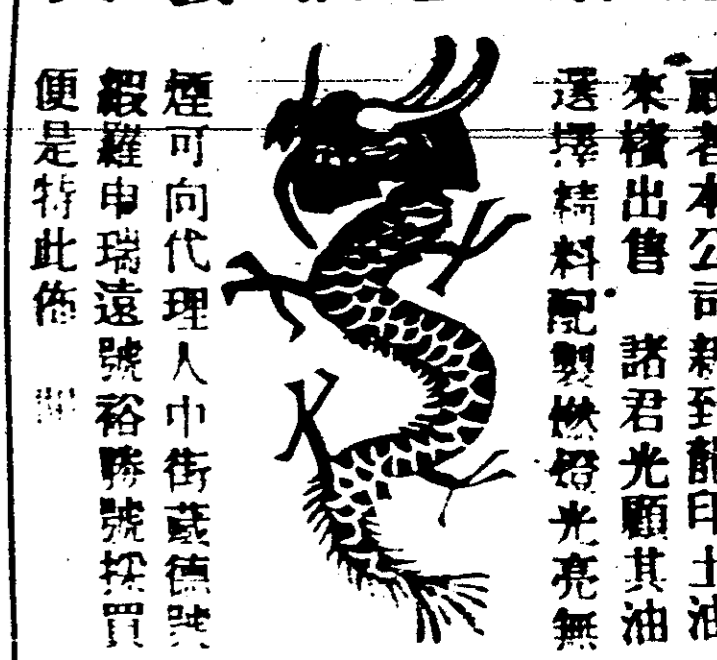 啟者本公司新到龍印土油
來檳出售　諸君光顧其油
選擇精料配製燃燈光亮無
煙可向代理人中街萬德號
緞羅申瑞遠號裕勝號採買
便是特此佈